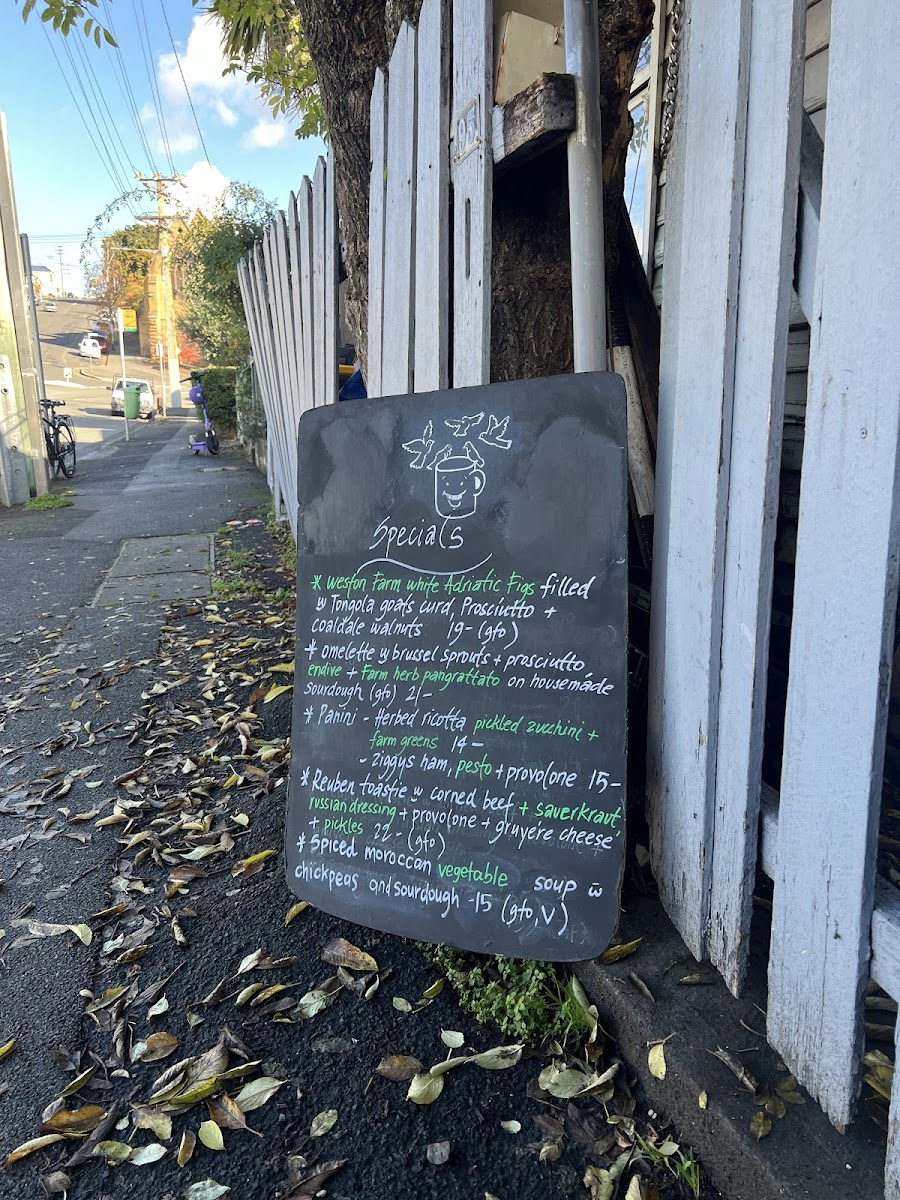 95
Specials
* weston Farm white Adriatic Figs filled
w Tongola goats curd, Prosciutto +
coaldale walnuts 19- (gfo)
* omelette w brussel sprouts + prosciutto
endive + Farm herb pangrattato on housemade
sourdough (gfo) 21-
* Panini - Herbed ricotta pickled zucchini +
farm greens 14-
- Ziggys ham, pesto + provolone 15-
* Reuben toastie w corned beef + sauerkraut
russian dressing + provolone + gruyere cheese
+ pickles 22- (gfo)
* Spiced moroccan vegetable soup w
chickpeas and sourdough -15 (gfo, V)